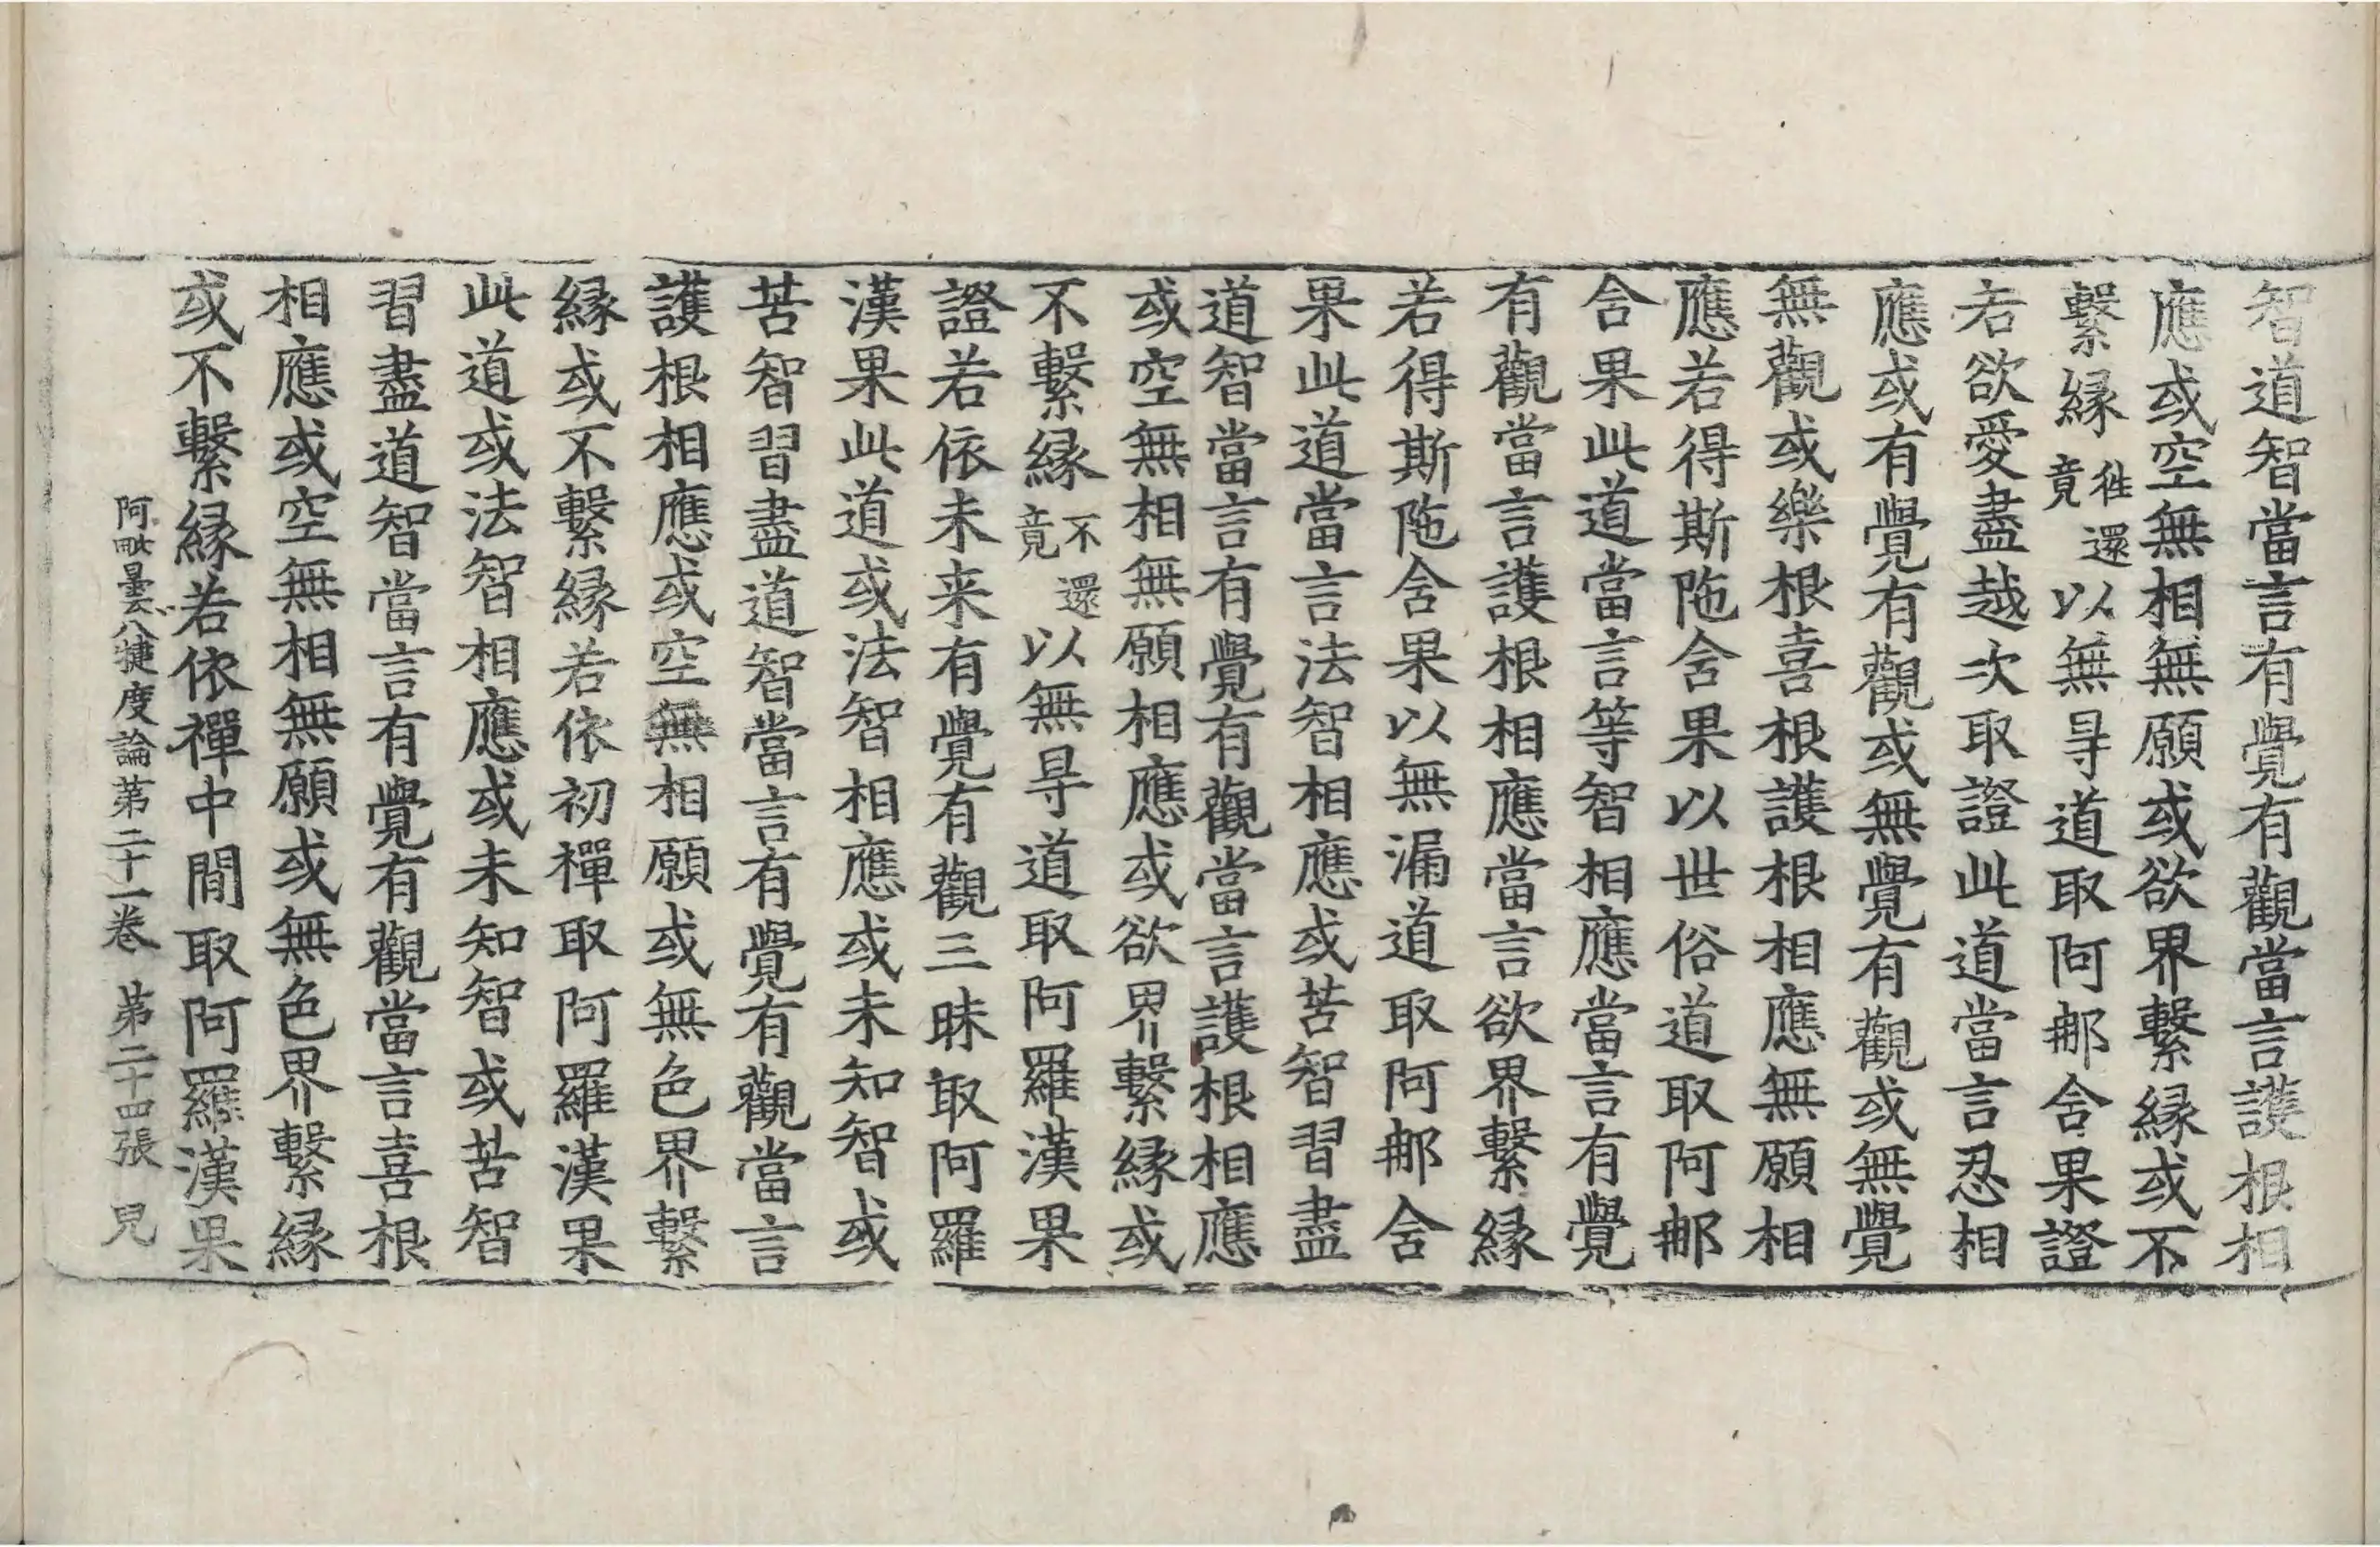 智道智當言有覺有觀當言護根相
應或空無相無願或欲界繫緣或不
繫緣往還竟以無㝵道取阿那含果證
若欲愛盡越次取證此道當言忍相
應或有覺有觀或無覺有觀或無覺
無觀或樂根喜根護根相應無願相
應若得斯陁含果以世俗道取阿那
含果此道當言等智相應當言有覺
有觀當言護根相應當言欲界繫緣
若得斯陁含果以無漏道取阿那含
果此道當言法智相應或苦智習盡
道智當言有覺有觀當言護根相應
或空無相無願相應或欲界繫緣或
不繫緣不還竟以無㝵道取阿羅漢果
證若依未来有覺有觀三昧取阿羅
漢果此道或法智相應或未知智或
苦智習盡道智當言有覺有觀當言
護根相應或空無相願或無色界繫
緣或不繫緣若依初禪取阿羅漢果
此道或法智相應或未知智或苦智
習盡道智當言有覺有觀當言喜根
相應或空無相無願或無色界繫緣
或不繫緣若依禪中間取阿羅漢果
阿毗曇八揵度論第二十一卷 第二十四張 皃